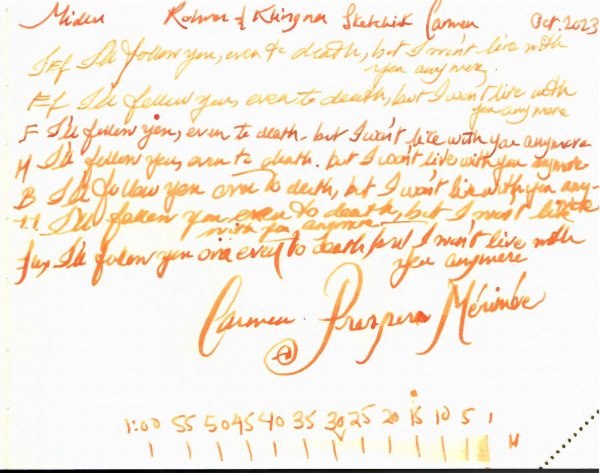 Midori Rohrer & Klingner Sketchink Carmen Oct. 2023
EEf I'll follow you, even to death, but I won't live with
you any more
Ef I'll follow you, even to death, but I won't live with
you any more
F I'll follow you, even to death. but I won't live with you anymore
M I'll follow you, even to death. but I won't live with you anymore
B I'll follow you even to death, but I won't live with you any-
more
1.1 I'll follow you even to death, but I won't live
with you anymore
I'll follow you even to death but I won't live with
you anymore
Carmen Prosper Mérimée
1:00 55 50 45 40 35 30 25 20 15 10 5 1
M